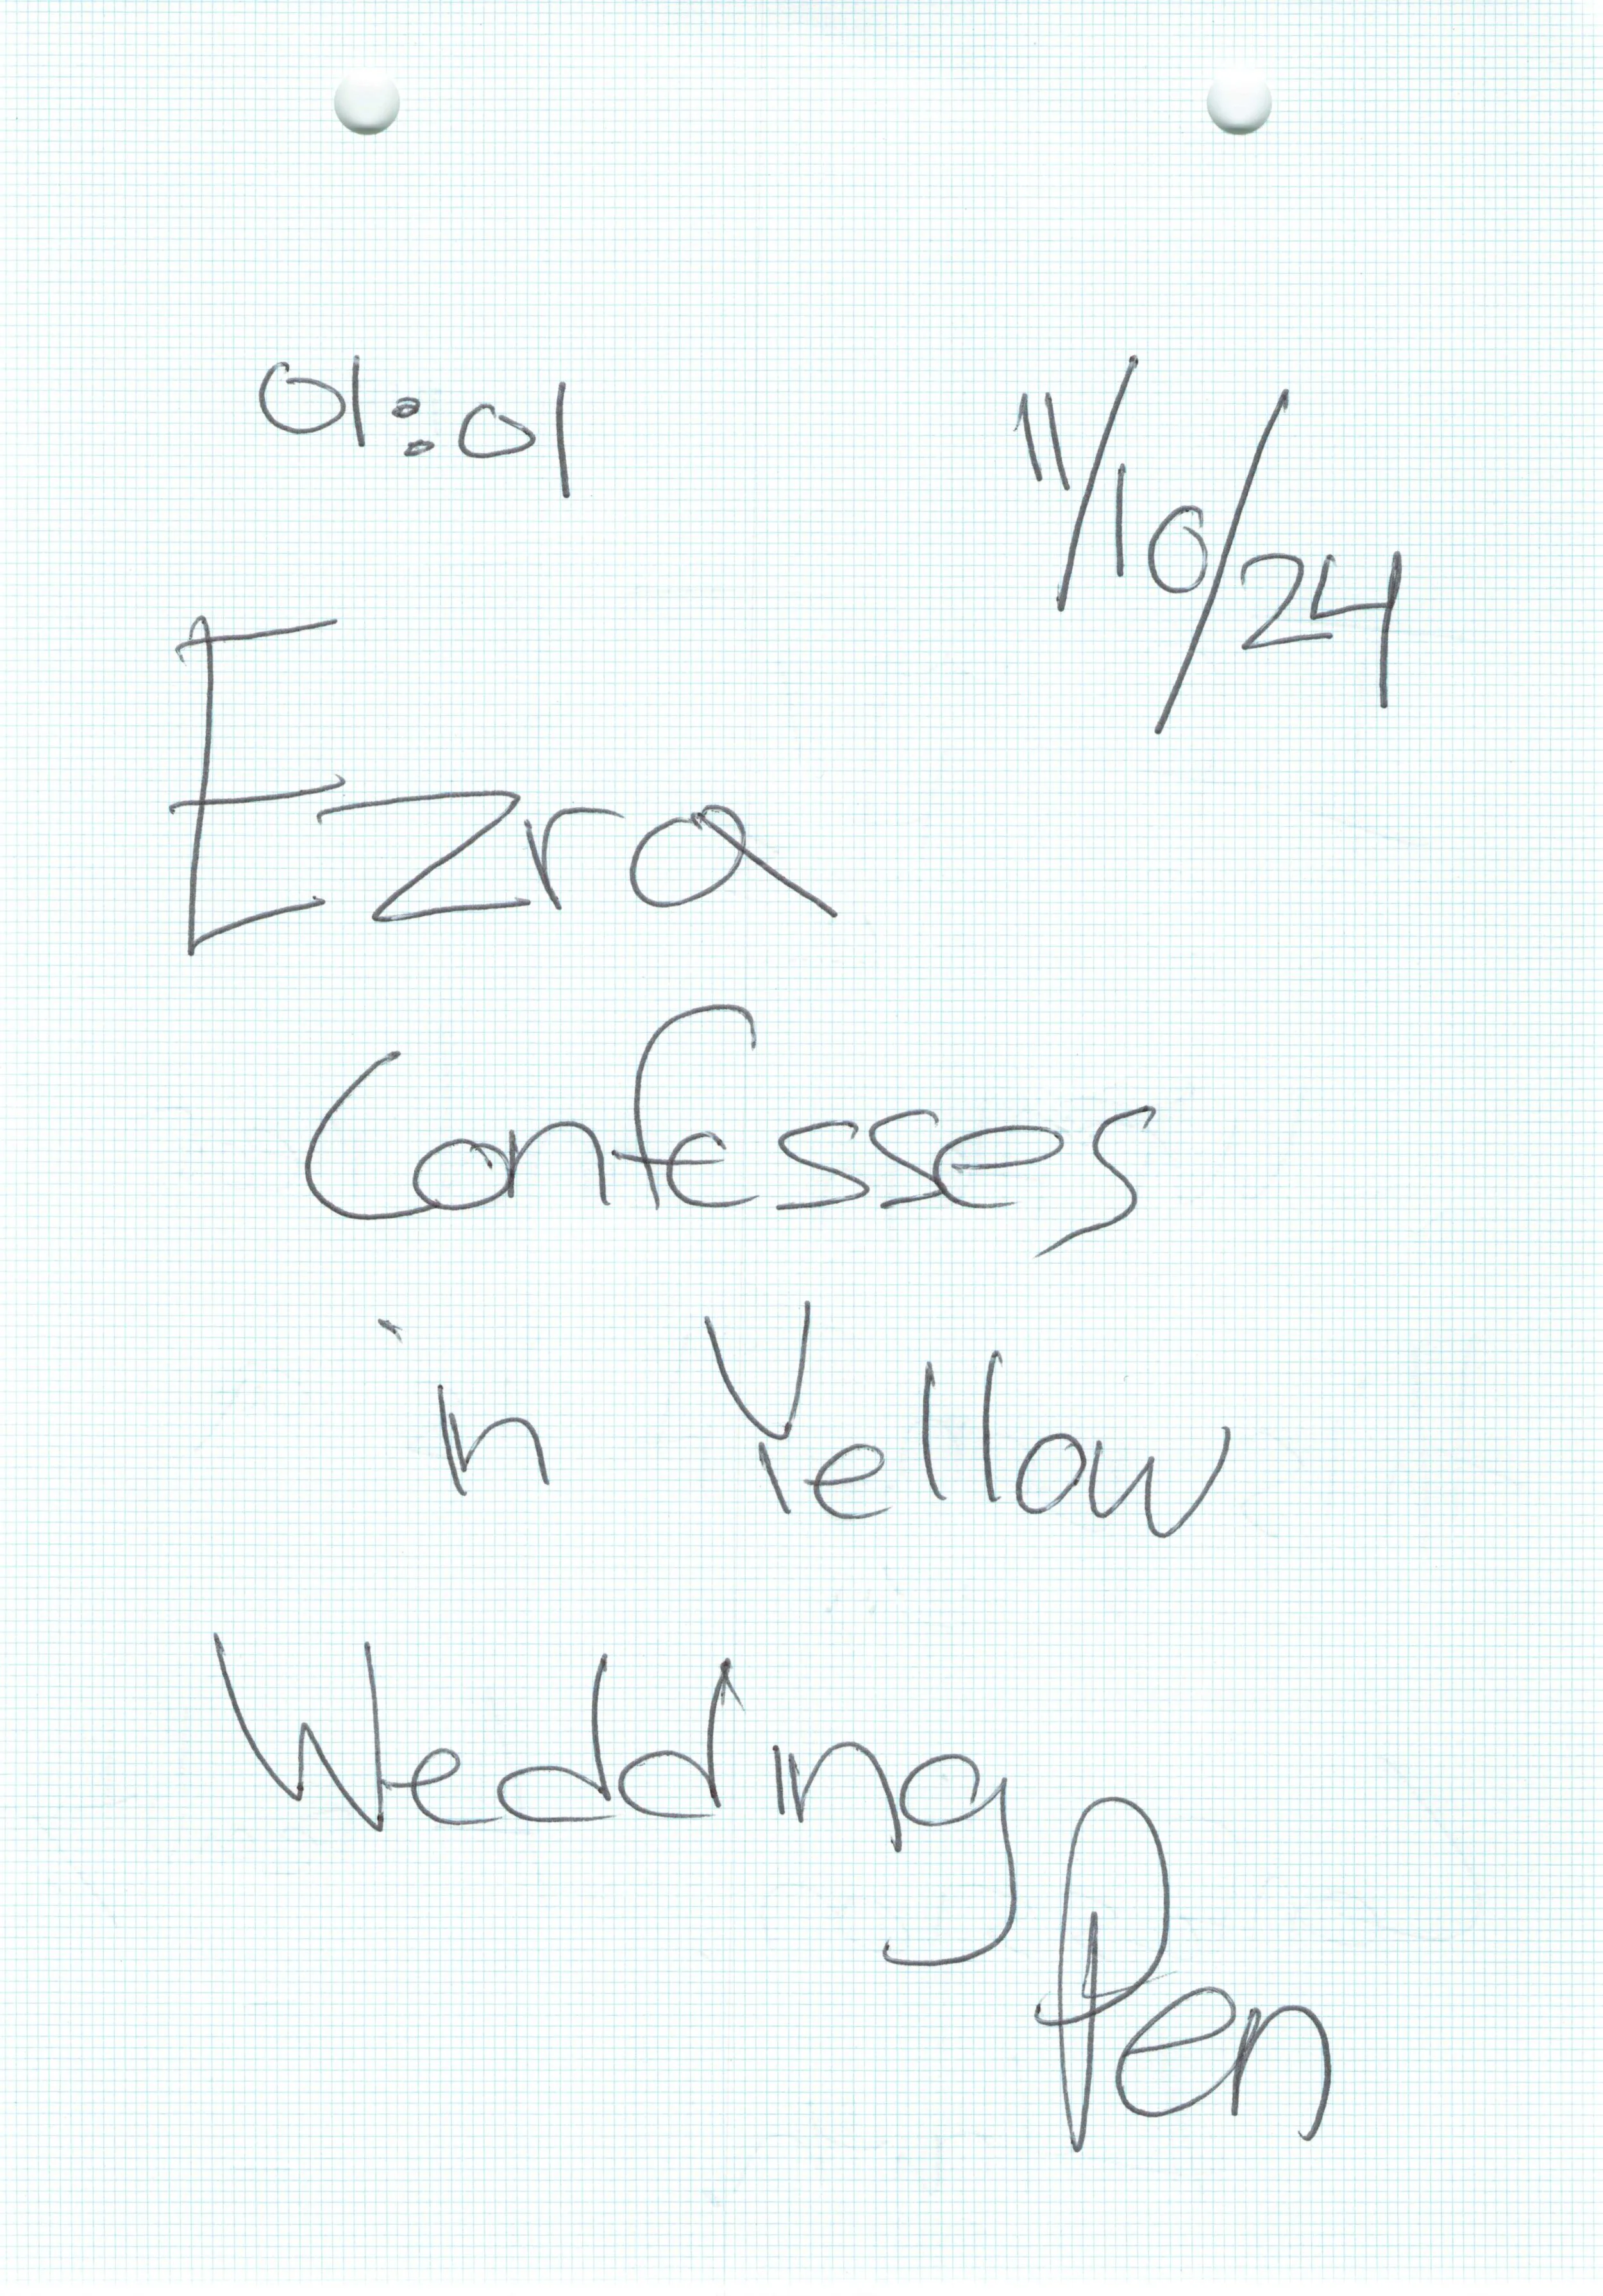 01:01 11/10/24
Ezra
Confesses
in Yellow
Wedding
Pen